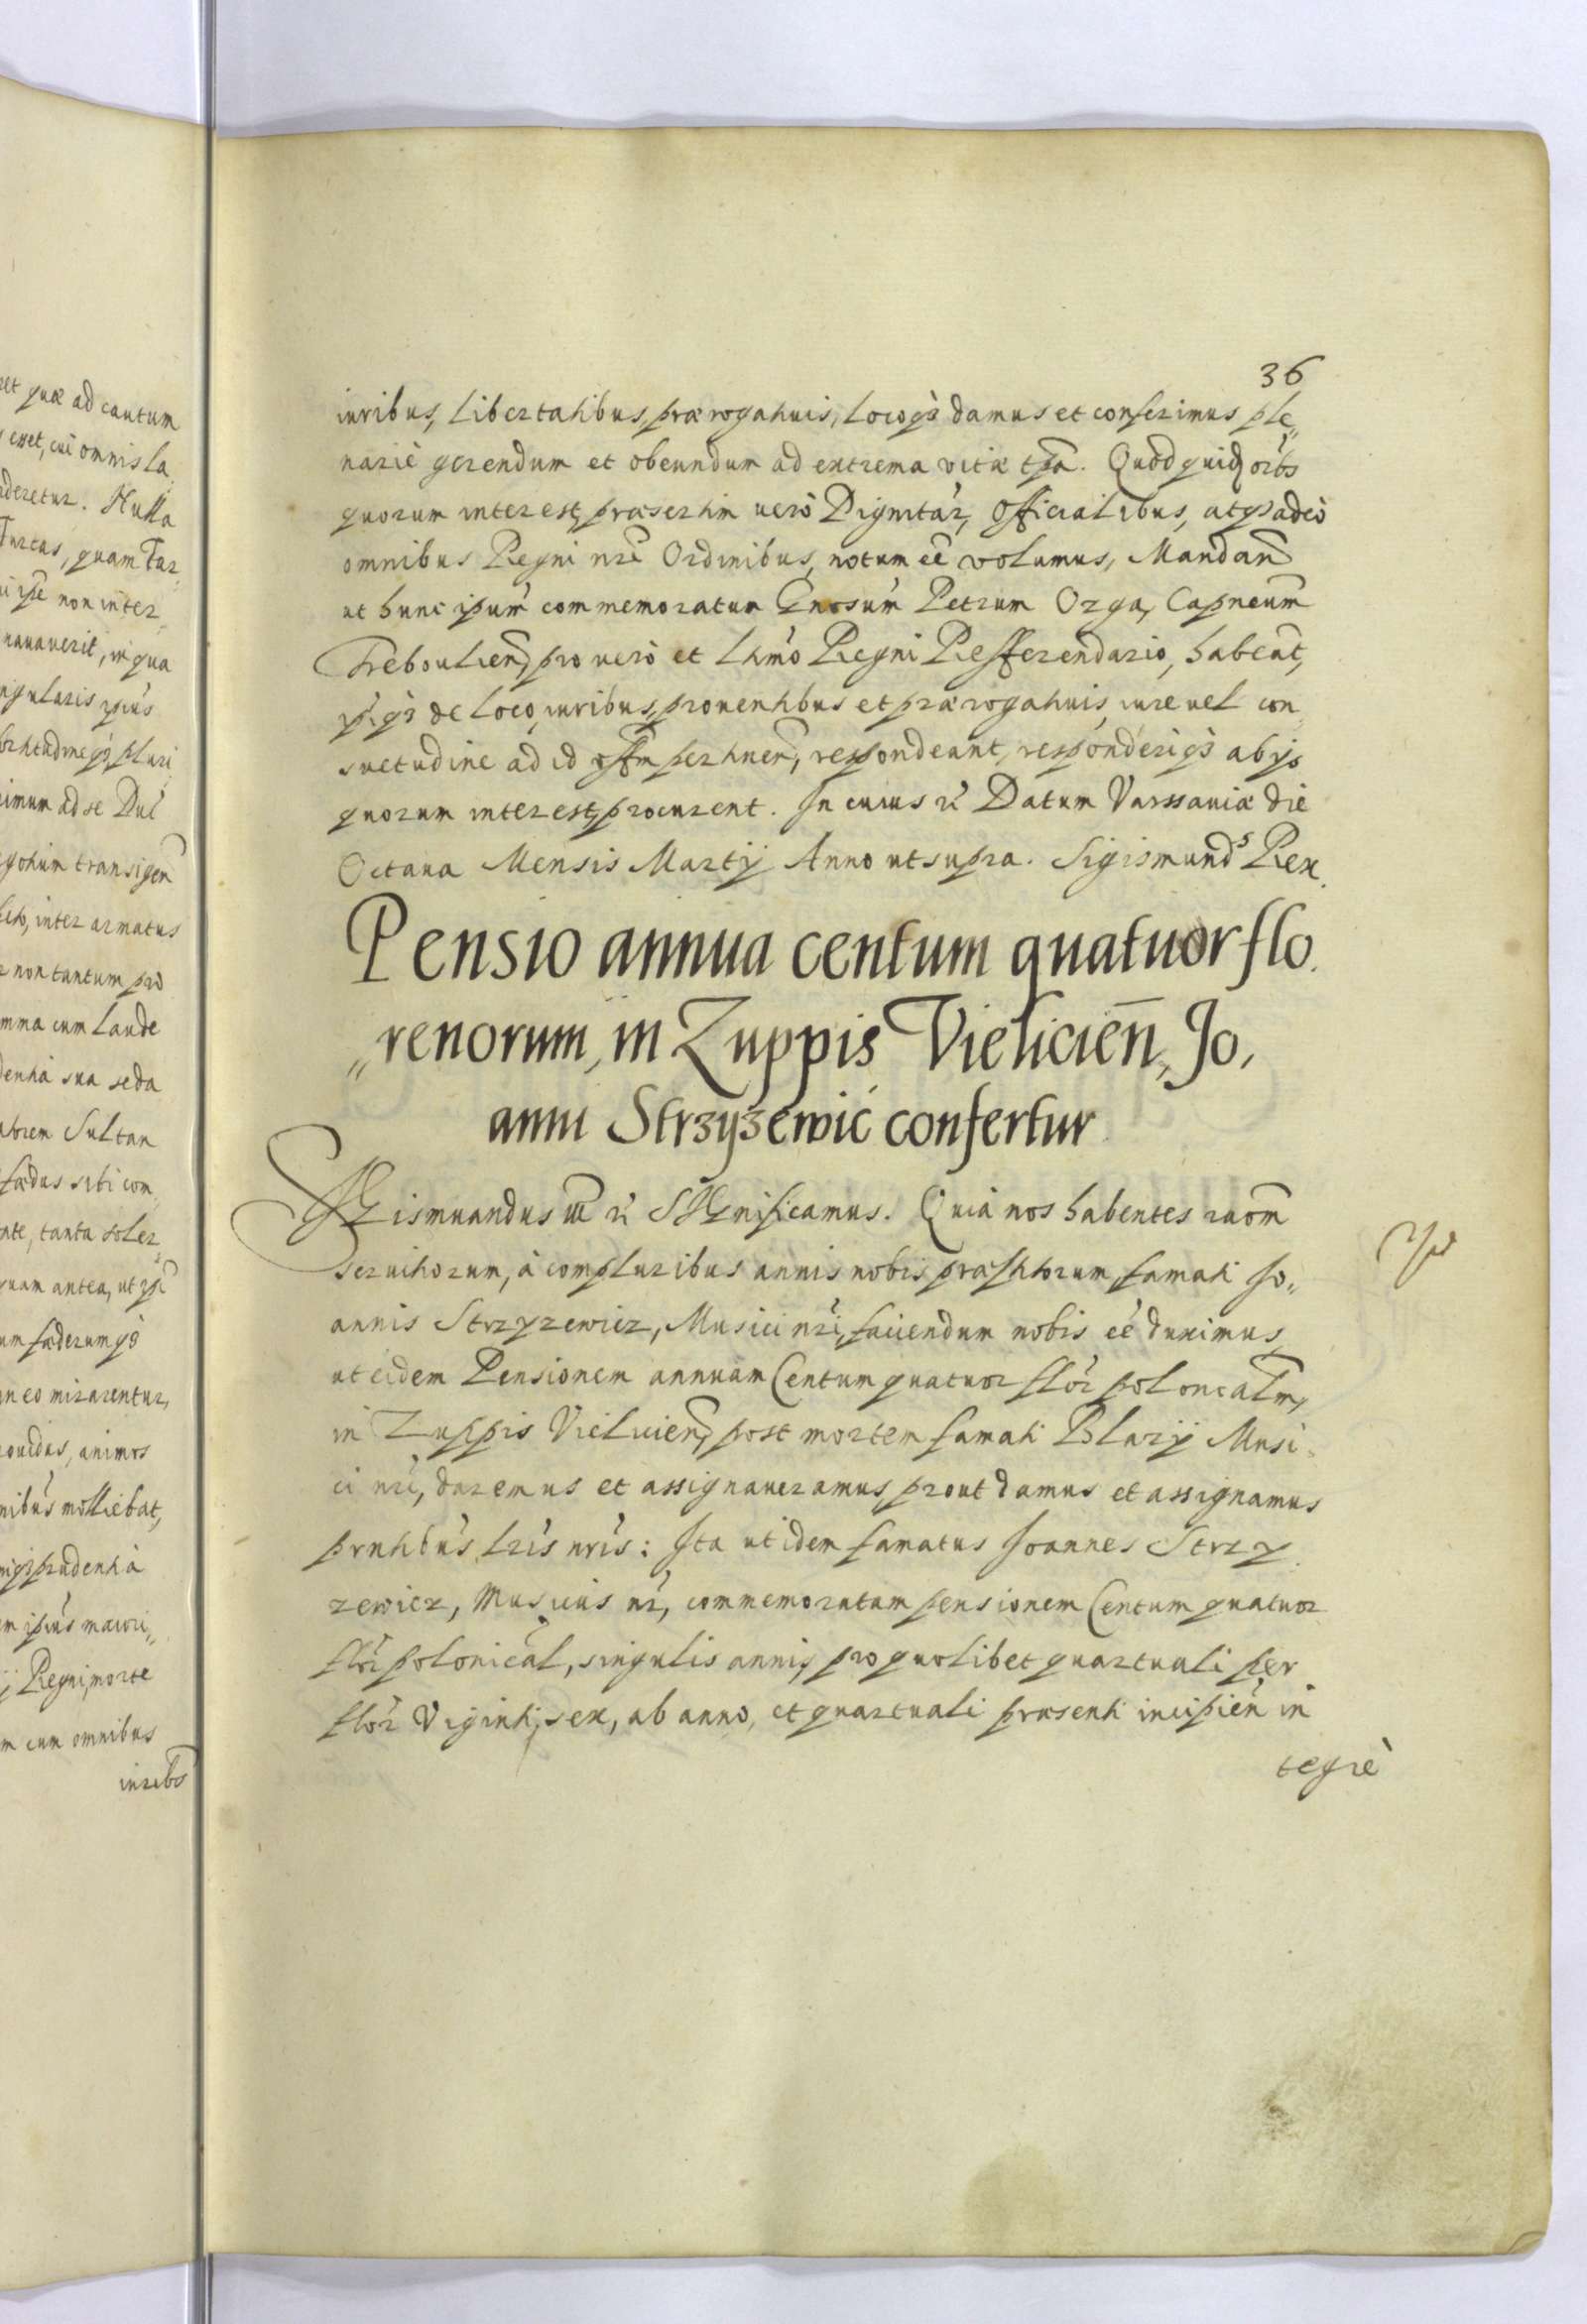 et quæ ad cautum
esset, cui omnis la
deretur. Nulla
Turcas, quam Tar
ipe non inter
navaverit, in qua
ngularis ipius
pluri
imum ad se Dul
gohium transigen
inter armatus
non tantum pro
mma cum laude
dentia sua seda
Sultan
fædus sibi com
ate, tanta soler
quam antea, ut
um fæderumqꝫ
n eo mirarentur,
animos
nibus molliebat,
prudentia
m ipius maiori„
ij Regni, morte
m cum omnibus
iuribꝯ
36
iuribus, libertatibus, prærogatiuis, locoqꝫ damus et conferimus ple„
nariè gerendum et obeundum ad extrema vitæ tpa. Quod quidem oībs
quorum interest, præsertim uerò Dignitar, Officialibus, atqꝫ adeò
omnibus Regni nri Ordinibus, notum eē volumus, Mandan
ut hunc ipum commemoratum Gnosum Petrum Ozga, Capneum
Treboulien, pro uero et Ltimo Regni Refferendario, habeant,
ipiqꝫ de loco, iuribus, prouentibus et prærogatiuis, iure uel con
suetudine ad id offm pertinen, respondeant, responderiqꝫ ab ijs
quorum interest, procurent. In cuius rei Datum Varssauiæ die
Octaua Mensis Martij Anno ut supra. Sigismundꝯ Rex.
Pensio annua centum quatuor flo.
„renorum, in Zuppis Vieliciēn, Jo,
anni Strzyzewic confertur
Sigismuandus III rī Significamus. Quia nos habentes raom
seruitiorum, à compluribus annis nobis præstitorum, famati Jo„
annis Strzyzewicz, Musici nri, faciendum nobis eē duximus,
ut eidem Pensionem annuam Centum quatuor flor polonicalm,
in Zuppis Vielicien, post mortem famati Blazij Musi„
ci nri, daremus et assignaueramus, prout damus et assignamus
prntibus lris nris: Ita ut idem famatus Joannes Strzy
zewicz, Musicus nr, commemoratam pensionem Centum quatuor
flor polonical, singulis annis, pro quolibet quartuali per
flor Viginti, sex, ab anno, et quartuali præsenti incipien in
tegrè